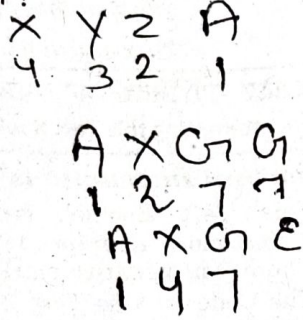 X Y Z A
4 3 2 1
A X G G
1 2 7 7
A X G E
1 4 7